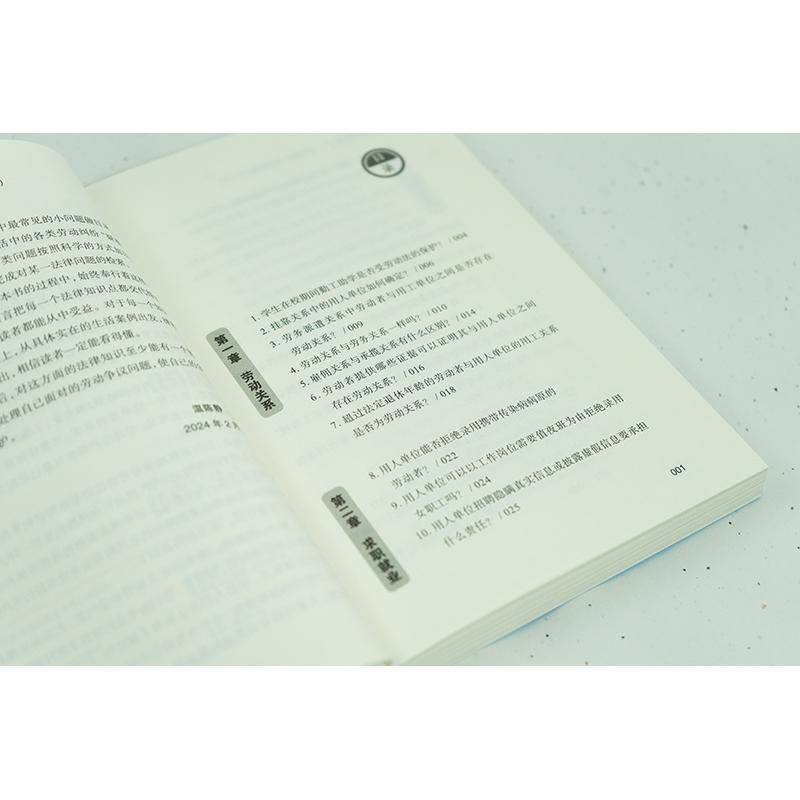 中最常见的小问题做
活中的各类劳动纠纷
类问题按照科学的方式
完成对某一法律问题的检索
本书的过程中，始终奉行着
言把每一个法律知识点都交代
读者都能从中受益。对于每个
上，从具体实在的生活案例出发，
出，相信读者一定能看得懂。
后，对这方面的法律知识至少能有一个
处理自己面对的劳动争议问题，使自己的
护。
温陈静
2024 年 2 月
目 录
第一章 劳动关系
1. 学生在校期间勤工助学是否受劳动法的保护？/ 004
2. 挂靠关系中的用人单位如何确定？/ 006
3. 劳务派遣关系中劳动者与用工单位之间是否存在
劳动关系？/ 009
4. 劳动关系与劳务关系一样吗？/ 010
5. 雇佣关系与承揽关系有什么区别？/ 014
6. 劳动者提供哪些证据可以证明其与用人单位之间
存在劳动关系？/ 016
7. 超过法定退休年龄的劳动者与用人单位的用工关系
是否为劳动关系？/ 018
第二章 求职就业
8. 用人单位能否拒绝录用携带传染病病原的
劳动者？/ 022
9. 用人单位可以以工作岗位需要值夜班为由拒绝录用
女职工吗？/ 024
10. 用人单位招聘隐瞒真实信息或披露虚假信息要承担
什么责任？/ 025
001